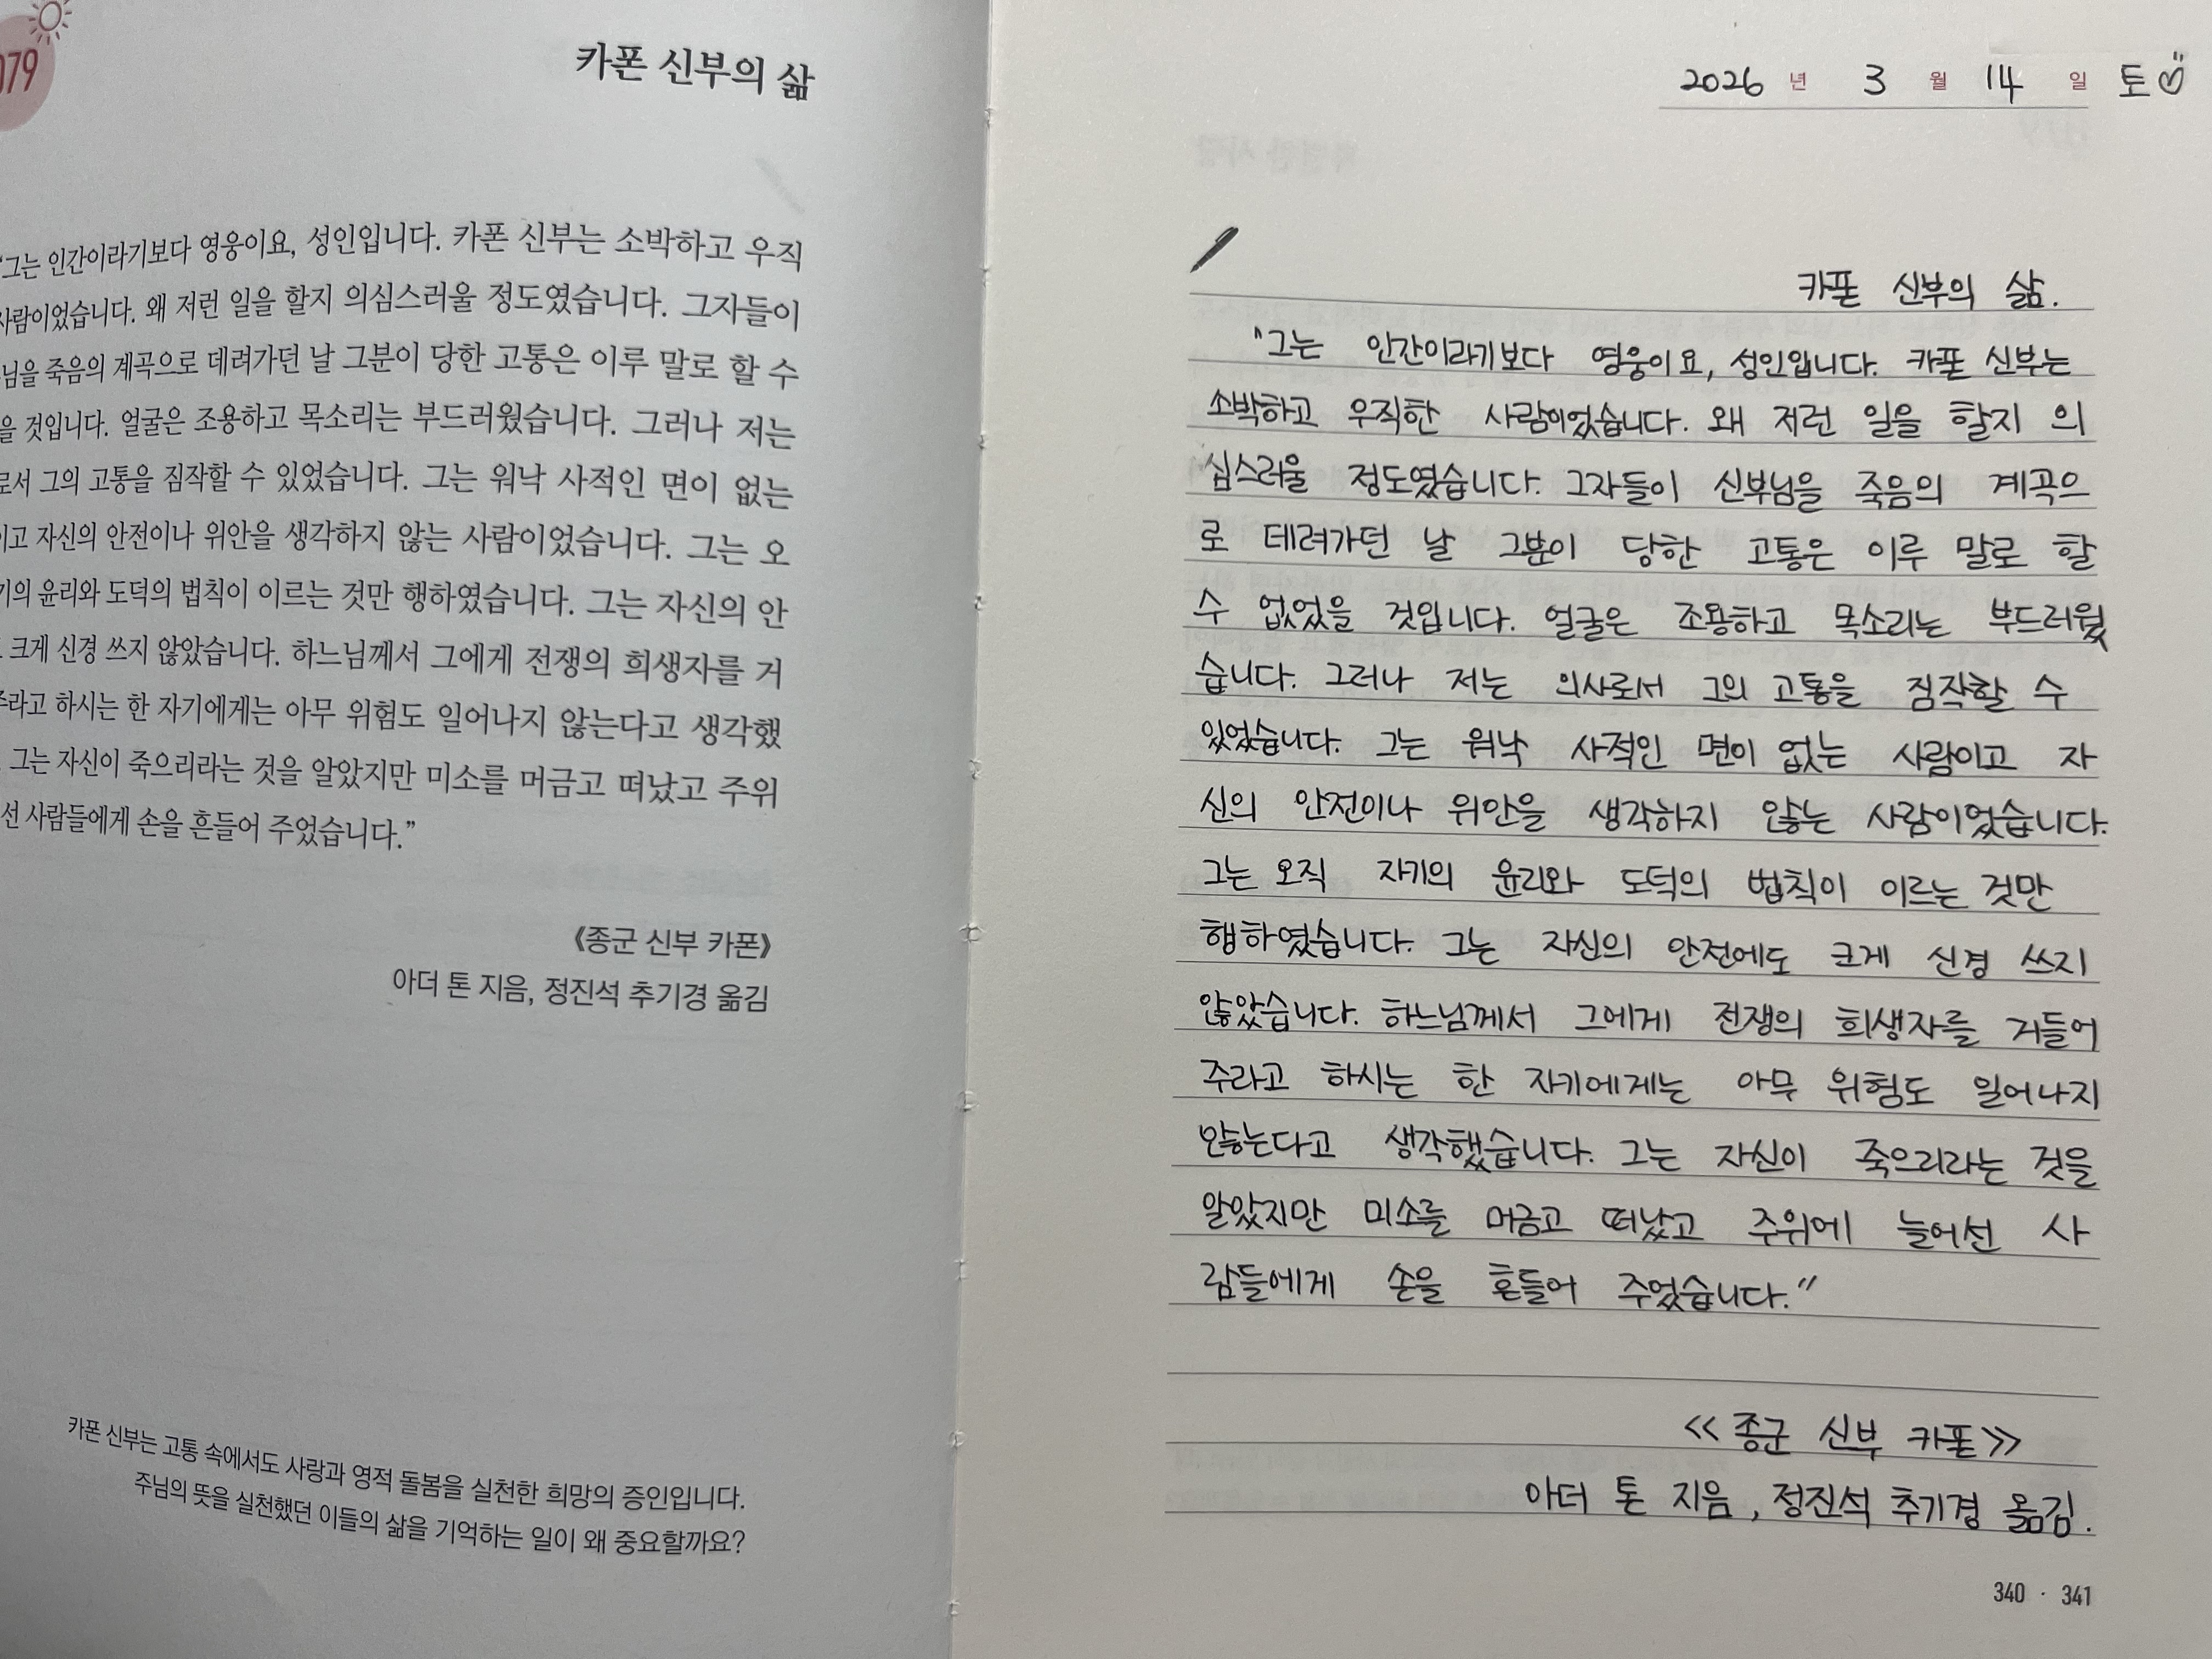 079
카폰 신부의 삶
“그는 인간이라기보다 영웅이요, 성인입니다. 카폰 신부는 소박하고 우직
사람이었습니다. 왜 저런 일을 할지 의심스러울 정도였습니다. 그자들이
님을 죽음의 계곡으로 데려가던 날 그분이 당한 고통은 이루 말로 할 수
을 것입니다. 얼굴은 조용하고 목소리는 부드러웠습니다. 그러나 저는
로서 그의 고통을 짐작할 수 있었습니다. 그는 워낙 사적인 면이 없는
이고 자신의 안전이나 위안을 생각하지 않는 사람이었습니다. 그는 오
기의 윤리와 도덕의 법칙이 이르는 것만 행하였습니다. 그는 자신의 안
크게 신경 쓰지 않았습니다. 하느님께서 그에게 전쟁의 희생자를 거
주라고 하시는 한 자기에게는 아무 위험도 일어나지 않는다고 생각했
. 그는 자신이 죽으리라는 것을 알았지만 미소를 머금고 떠났고 주위
선 사람들에게 손을 흔들어 주었습니다.”
《종군 신부 카폰》
아더 톤 지음, 정진석 추기경 옮김
카폰 신부는 고통 속에서도 사랑과 영적 돌봄을 실천한 희망의 증인입니다.
주님의 뜻을 실천했던 이들의 삶을 기억하는 일이 왜 중요할까요?
2026 년 3 월 14 일 토
카폰 신부의 삶.
"그는 인간이라기보다 영웅이요, 성인입니다. 카폰 신부는
소박하고 우직한 사람이었습니다. 왜 저런 일을 할지 의
심스러울 정도였습니다. 그자들이 신부님을 죽음의 계곡으
로 데려가던 날 그분이 당한 고통은 이루 말로 할
수 없었을 것입니다. 얼굴은 조용하고 목소리는 부드러웠
습니다. 그러나 저는 의사로서 그의 고통을 짐작할 수
있었습니다. 그는 워낙 사적인 면이 없는 사람이고 자
신의 안전이나 위안을 생각하지 않는 사람이었습니다.
그는 오직 자기의 윤리와 도덕의 법칙이 이르는 것만
행하였습니다. 그는 자신의 안전에도 크게 신경 쓰지
않았습니다. 하느님께서 그에게 전쟁의 희생자를 거들어
주라고 하시는 한 자기에게는 아무 위험도 일어나지
않는다고 생각했습니다. 그는 자신이 죽으리라는 것을
알았지만 미소를 머금고 떠났고 주위에 늘어선 사
람들에게 손을 흔들어 주었습니다."
<<종군 신부 카폰>>
아더 톤 지음, 정진석 추기경 옮김.
340 · 341